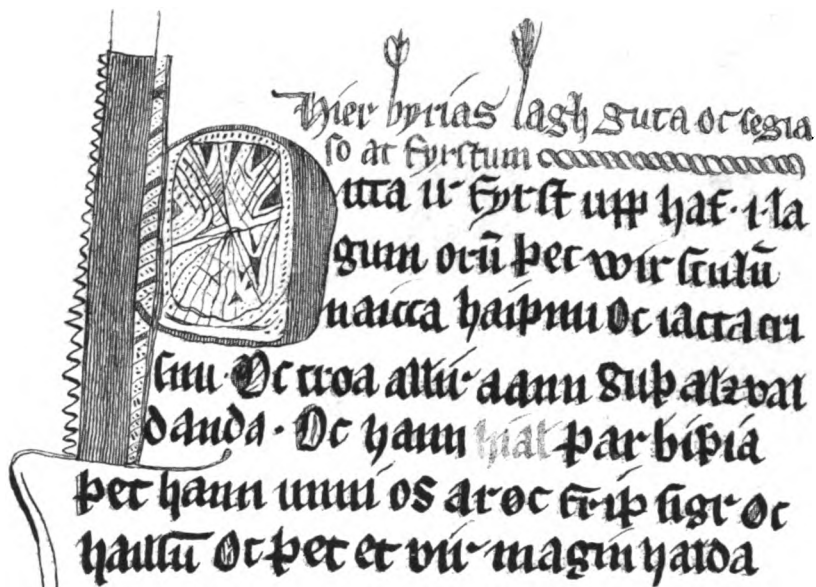 Hier byrias lagh guta oc segia
so at fyrstum
Þitta ir fyrst upp haf · i · la
gum orū þet wir sculū
naicca haiþnu Oc iatta cri
snu · Oc troa allir aann guþ alzval
danda · Oc hann hial þar biþia
þet hann unni os ar oc friþ sigr Oc
hailsū Oc þet et vir magin halda